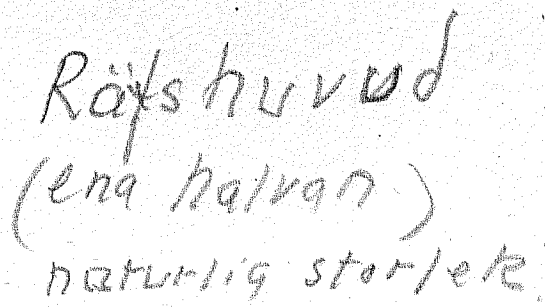 Räfshuvud
(ena halvan)
naturlig storlek.